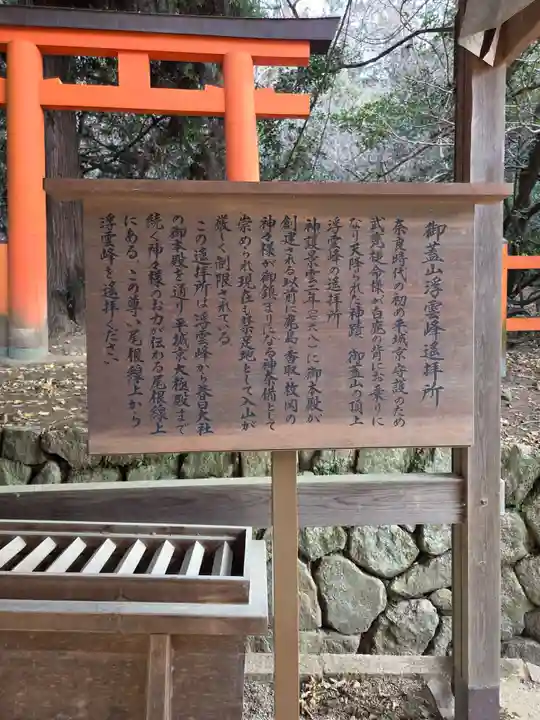 御蓋山浮雲峰遙拝所
奈良時代の初め平城京守護のため
武甕槌命様が白鹿の背にお乗りに
なり天降られた神蹟、御蓋山の頂上
浮雲峰の遙拝所
神護景雲二年(七六八)に御本殿が
創建される以前に鹿島・香取・枚岡の
神々様が御鎮まりになる神奈備として
崇められ現在も禁足地として入山が
厳しく制限されている
この遙拝所は浮雲峰から春日大社
の御本殿を通り平城京大極殿まで
続く神々様のお力が伝わる尾根線上
にある、この尊い尾根線上から
浮雲峰を遙拝ください